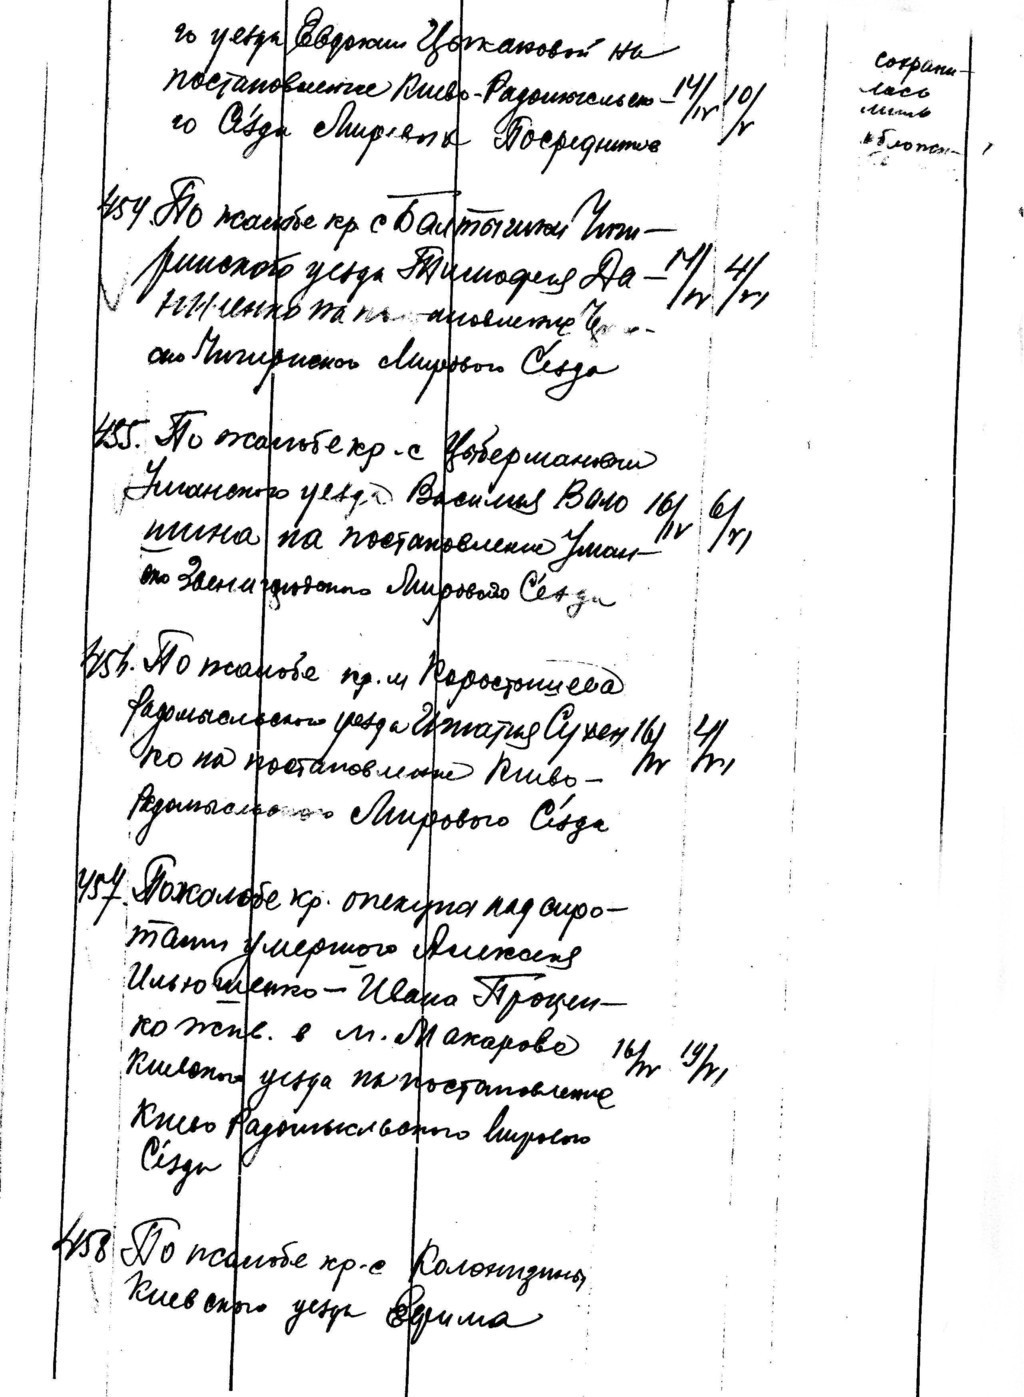 го уезда Евдокии Цыкановой на
постановление Киево-Радомысльско- 14/IV 10/V
го Съезда Мировых Посредников
сохрани-
лась
лишь
обложк-
454. По жалобе кр. с Балтышки Чиги-
ринского уезда Тимофея Да- 14/IV 4/VI
ниленко на
Чигиринского Мирового Съезда
455. По жалобе кр-с Цыбермановки
Уманского уезда Василия Воло 16/IV 6/VI
шина на постановление Уман-
ско Звенигородского Мирового Съезда
456. По жалобе кр. м Коростышева
Радомысльского уезда Игнатия Сухен 16/IV 4/VI
ко на постановление Киево-
Радомысльского Мирового Съезда
457. По жалобе кр. опекуна над сиро-
тами умершого Алексея
Ильюшенко - Ивана Процен-
ко жив. в м. Макарове 16/IV 19/VI
Киевского уезда на постановление
Киево Радомысльского Мирового
Съезда
458 По жалобе кр-с Колонщины
Киевского уезда Ефима